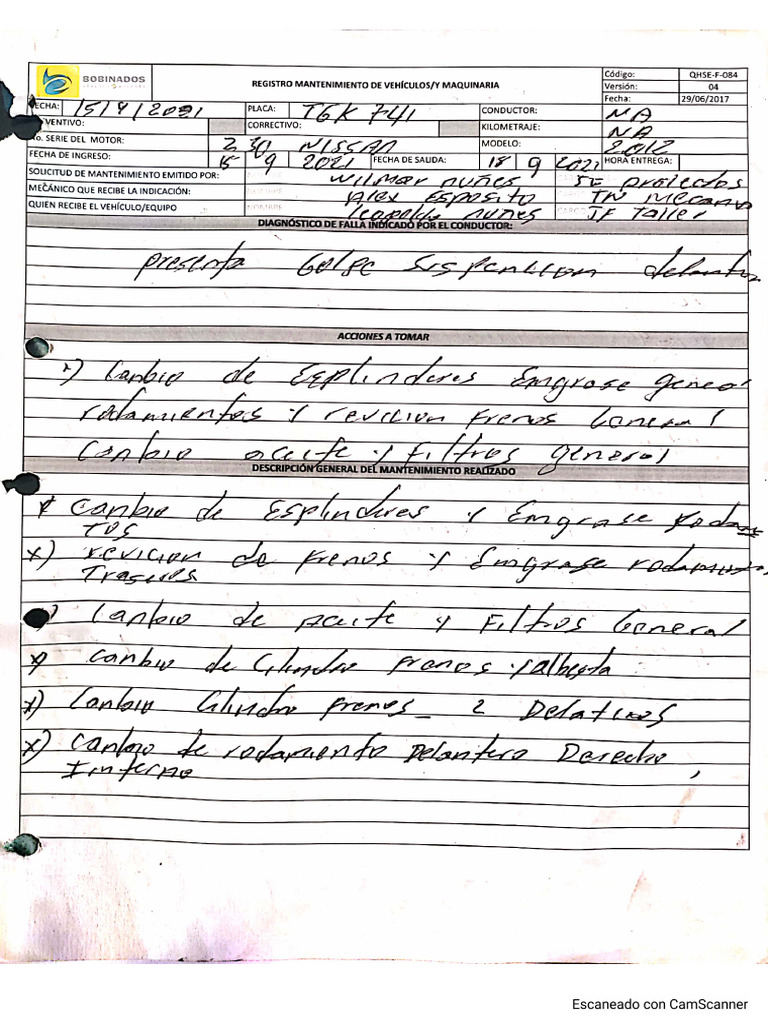 BOBINADOS
REGISTRO MANTENIMIENTO DE VEHÍCULOS/Y MAQUINARIA
Código: QHSE-F-084
Versión: 04
Fecha: 29/06/2017
FECHA: 15/9/2021 PLACA: TGK 741 CONDUCTOR: NA
EVENTIVO: CORRECTIVO: KILOMETRAJE: NA
No. SERIE DEL MOTOR: NISSAN MODELO: 2012
FECHA DE INGRESO: 15 9 2021 FECHA DE SALUDA: 18 9 2021 HORA ENTREGA:
SOLICITUD DE MANTENIMIENTO EMITIDO POR: Wilmar Nuñes proiectos
MECÁNICO QUE RECIBE LA INDICACIÓN: Alex Esposito TN Mecanic
QUIEN RECIBE EL VEHÍCULO/EQUIPO NOMBRE Leopoldo Nuñes CARGO JF Taller
DIAGNÓSTICO DE FALLA INDICADO POR EL CONDUCTOR:
presenta Golpe Suspencion
ACCIONES A TOMAR
Cambio de Esplinderes Emgrase
rodamientos y revicion Frenos General
Cambio aceite y Filtros general
DESCRIPCIÓN GENERAL DEL MANTENIMIENTO REALIZADO
* Cambio de Esplinderes y Emgrase Rodam
TOS
*) revicion de Frenos y Emgrase
Traseres
) Cambio de Aceite y Filtros General
*) Cambio de Cilindro Frenos
*) Cambio Cilindro Frenos_ 2
*) Cambio de rodamiento Delantero Derecho,
Imterno
Escaneado con CamScanner